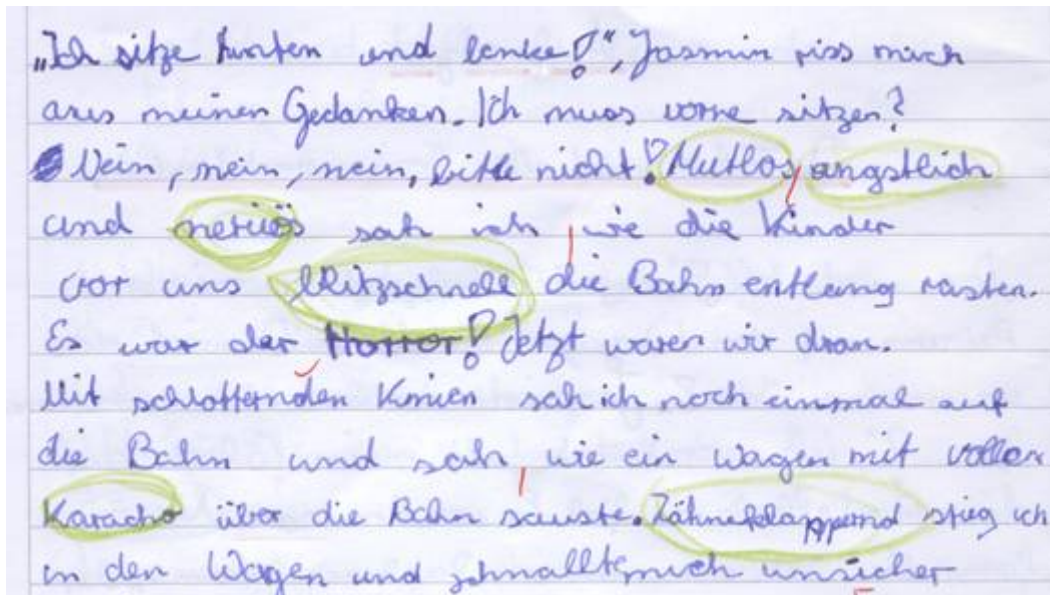 „Ich sitze hinten und lenke!“, Jasmin riss mich
aus meinen Gedanken. Ich muss vorne sitzen?
Nein, nein, nein, bitte nicht! Mutlos, ängstlich
und nerüös sah ich, wie die Kinder
vor uns blitzschnell die Bahn entlang rasten.
Es war der Horror! Jetzt waren wir dran.
Mit schlotternden Knien sah ich noch einmal auf
die Bahn und sah, wie ein Wagen mit voller
Karacho über die Bahn sauste. Zähneklappernd stieg ich
in den Wagen und schnallte mich unsicher